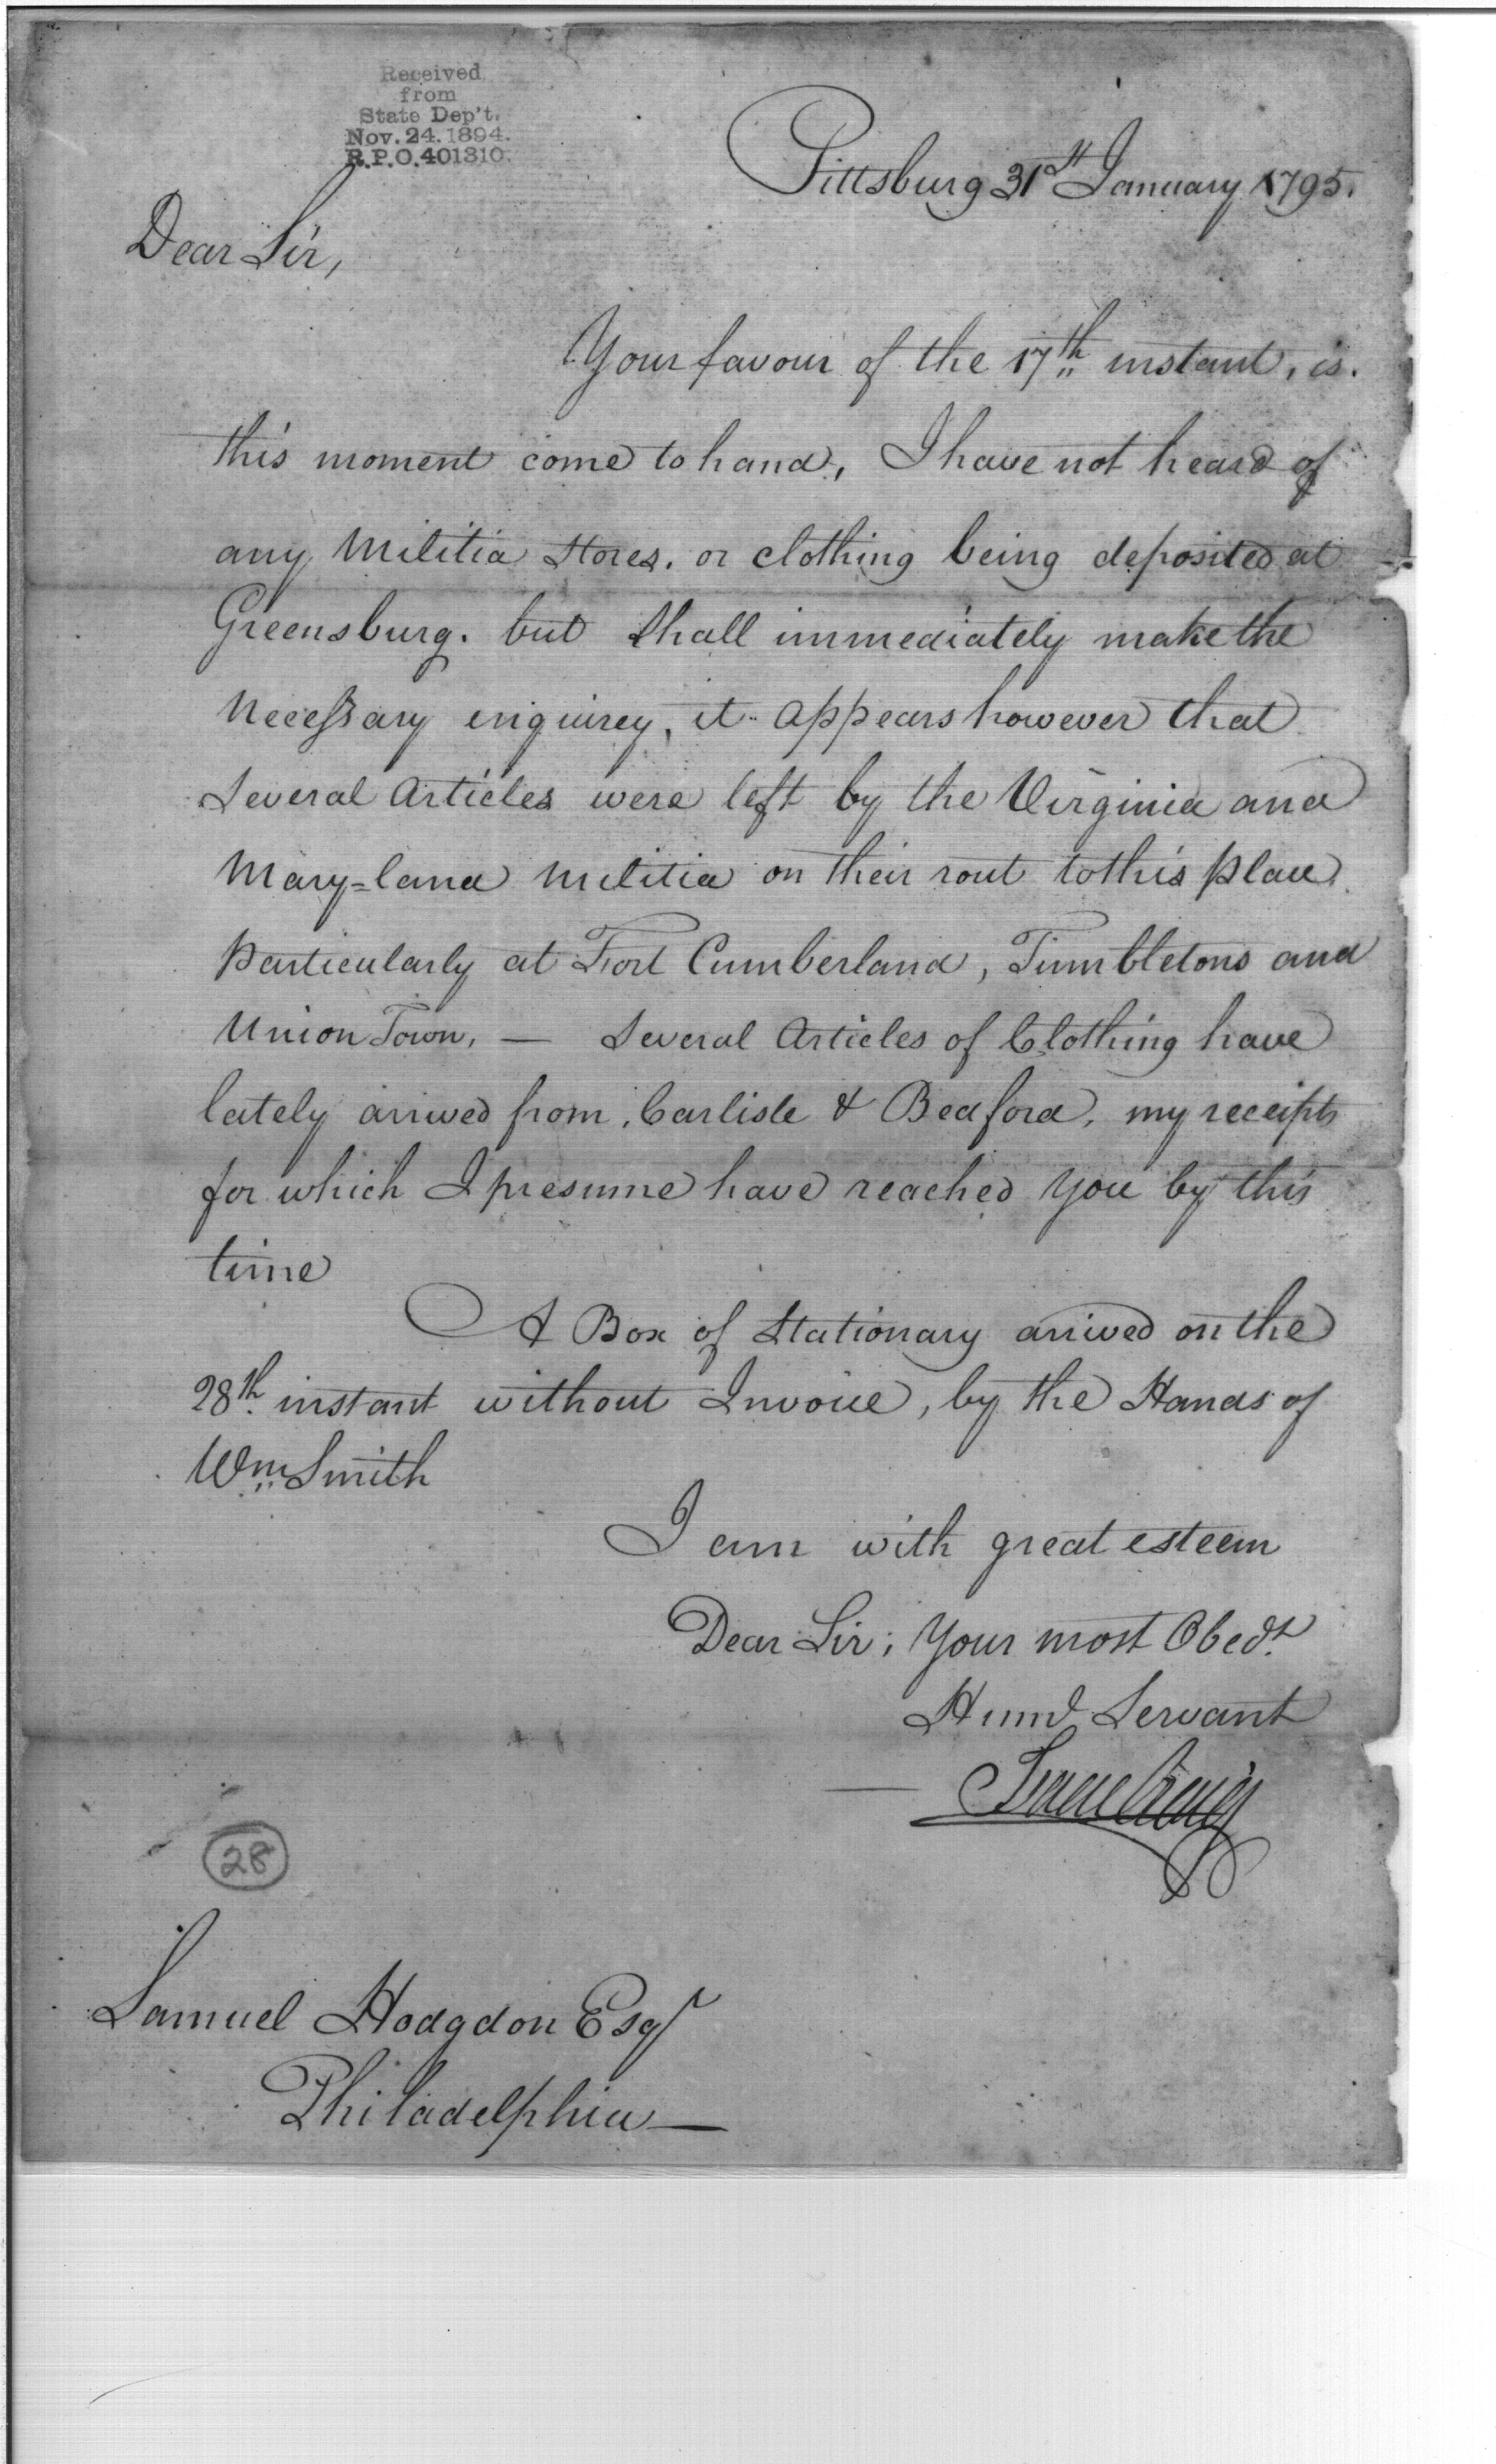 Received
from
State Dep't.
Nov. 24. 1894.
R.P.O. 401310.
Pittsburg 31st January 1795.
Dear Sir,
Your favour of the 17th instant, is.
this moment come to hand, I have not heard of
any Militia Stores. or clothing being deposited at
Greensburg. but shall immediately make the
Necessary enquirey, it appears however that
Several Articles were left by the Virginia and
Mary=land Militia on their rout to this place.
particularly at Fort Cumberland, Tumbletons and
Union Town, — Several Articles of Clothing have
lately arrived from Carlisle & Bedford, my receipts
for which I presume have reached you by this
time
A Box of Stationary arrived on the
28th instant without Invoice, by the Hands of
Wm Smith
I am with great esteem
Dear Sir; Your most Obedt.
Huml Servant
Isaac Craig
28
Samuel Hodgdon Esqr
Philadelphia —